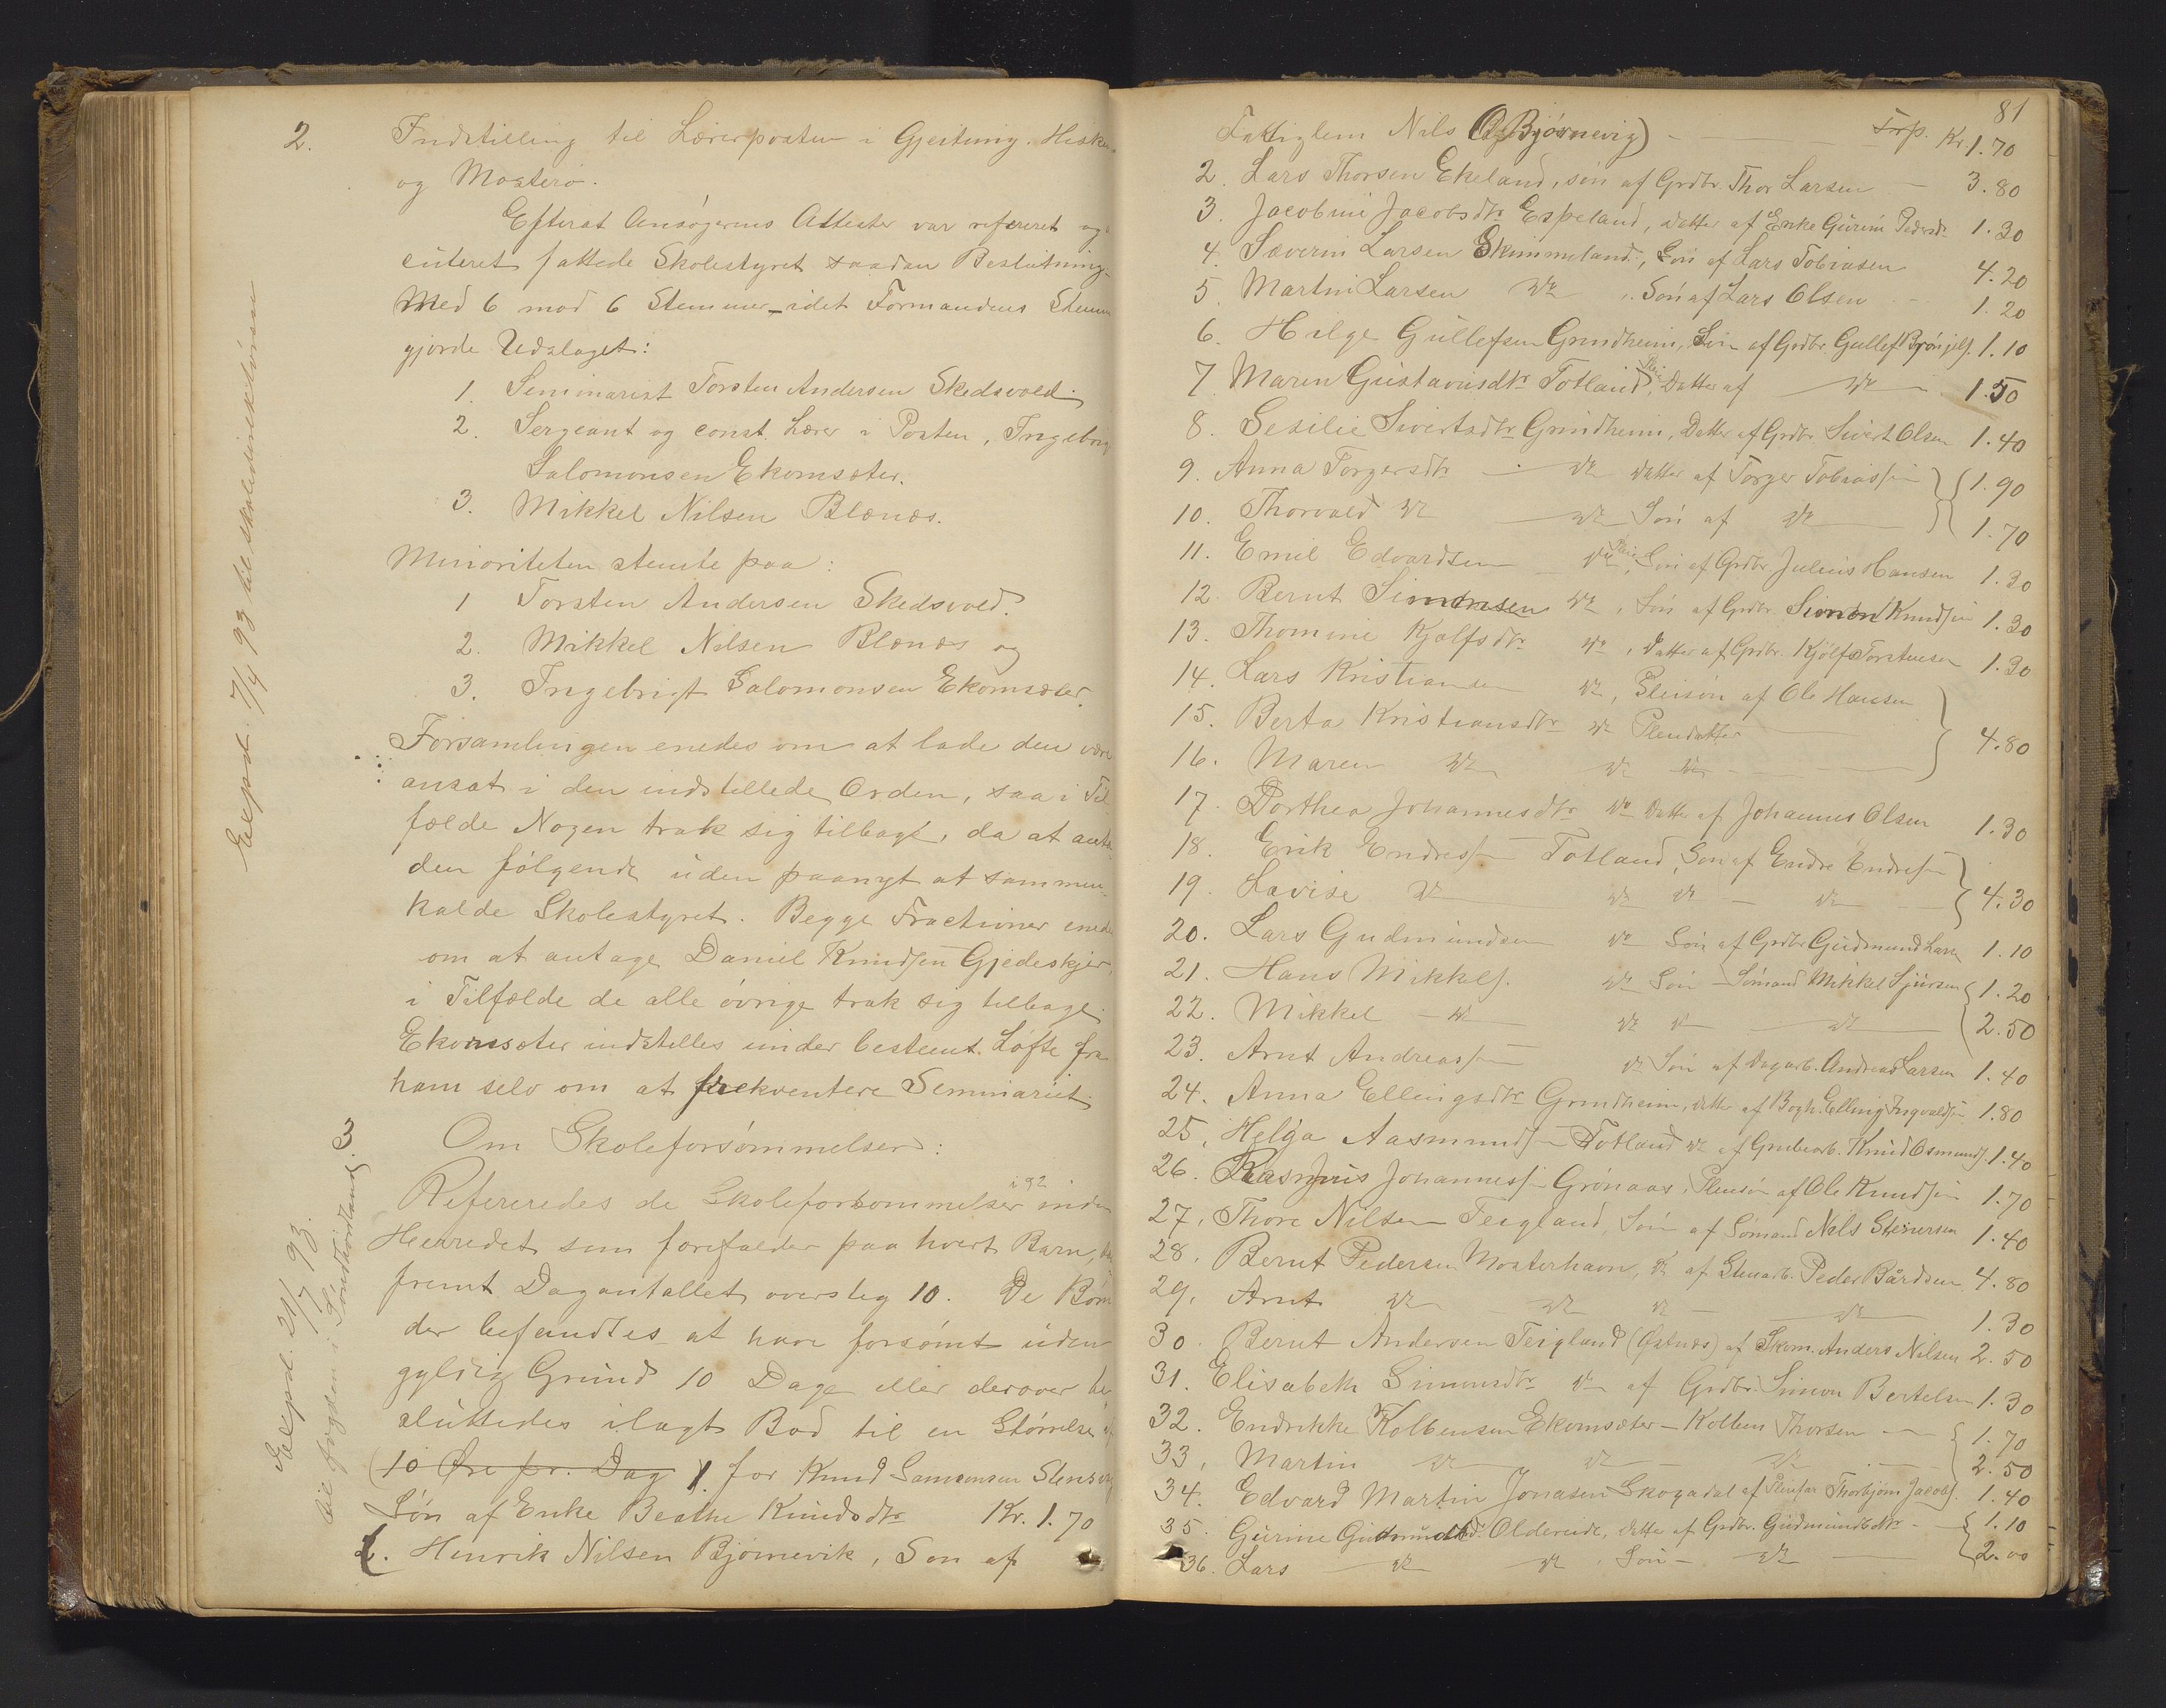 2. Indstilling til Lærerposten i Gjeitung. Hiske
og Mosterø.
Efterat Ansøgernes Attester var refereret og
cuteret fattede Skolestyret saadan Beslutning
Med 6 mod 6 Stemmer – idet Formandens Stem
gjorde Udslaget:
1. Seminarist Torsten Andersen Skedsvold
2. Sergeant og const. Lærer i Posten, Ingebrig
Salomonsen Ekornsæter.
3. Mikkel Nilsen Blænæs.
Minoriteten stemte paa:
1 Torsten Andersen Skedsvold.
2. Mikkel Nilsen Blænæs og
3. Ingebrigt Salomonsen Ekornsæter.
Forsamlingen enedes om at lade den være
ansat i den indstillede Orden, saa i Til
fælde Nogen trak sig tilbage, da at anta
den følgende uden paanyt at sammen-
kalde Skolestyret. Begge Fractioner ened
om at antage Daniel Knudsen Gjedeskjer
i Tilfælde de alle øvrige trak sig tilbage.
Ekornsæter indstilles under bestemt Løfte fra
ham selv om at frekventere Seminariet.
3. Om Skoleforsømmelser:
Refereredes de Skoleforsømmelser i 92 inden
Herredet som forefalder paa hvert Barn,
fremt Dagantallet oversteg 10. De Børn
der befandtes at have forsømt uden
gyldig Grund 10 Dage eller derover be
sluttedes ilagt Bod til en Størrelse af
(10 Øre pr. Dag 1. for Knud Samsonsen Stensv
Søn af Enke Beathe Knudsdtr Kr. 1.70
2. Henrik Nilsen Bjørnevik, Søn af
Expd. 7/4 93 til skoledirektøren
Expd. 21/7 93.
til fogden i Søndhordland.
81
Fattiglem Nils (A. Bjørnevig) – Trp. Kr. 1.70
2. Lars Thorsen Ekeland, søn af Grdbr. Thor Larsen – 3.80
3. Jacobine Jacobsdtr Espeland, datter af Enke Gurine Pedersdr 1.30
4. Sæverin Larsen Skimmeland, Søn af Lars Tobiasen 4.20
5. Martin Larsen do, Søn af Lars Olsen 1.20
6. Helge Gullefsen Grindheim, Søn af Grdbr. Gullef Brynjels. 1.10
7. Maren Gustavusdtr Totland, Datter af do 1.50
8. Sesilie Sivertsdtr Grindheim, Datter af Grdbr. Sivert Olsen 1.40
9. Anna Torgersdtr do datter af Torger Tobiassen 1.90
10. Thorvald do do Søn af do 1.70
11. Emil Edvardsen do, Søn af Grdbr. Julius Hansen 1.30
12. Bernt Simonsen do, Søn af Grdbr. Simon Knudsen 1.30
13. Thomine Kjølfsdtr do, Datter af Grdbr. Kjølf Torstensen 1.30
14. Lars Kristiansen do, Pleisøn af Ole Hansen
15. Berta Kristiansdtr do Pleiedatter 4.80
16. Maren do do do
17. Dorthea Johannesdtr do Datter af Johannes Olsen 1.30
18. Erik Endresen Totland, Søn af Endre Endresen
19. Lovise do do do – do – 4.30
20. Lars Gudmundsen do Søn af Grdbr Gudmund Larsen 1.10
21. Hans Mikkels. do Søn – Sømand Mikkel Sjursen 1.20
22. Mikkel – do do do do 2.50
23. Arnt Andreassen do Søn af Dagarb. Andreas Larsen 1.40
24. Anna Ellingsdtr Grindheim, datter af Bogh. Elling Ingvaldsen 1.80
25. Helga Aasmunds. Totland do af Grubearb. Knud Osmunds. 1.40
26. Rasmus Johannessen Grønaas, Pleiesøn af Ole Knudsen 1.70
27. Thore Nilsen Teigland, Søn af Sømand Nils Steinersen 1.40
28. Bernt Pedersen Mosterhavn, do af Stenarb. Peder Bårdsen 4.80
29. Arnt do – do do – do 1.30
30. Bernt Andersen Teigland (Østnæs) af Skom. Anders Nilsen 2.50
31. Elisabeth Simonsdtr do af Grdbr. Simon Bertelsen 1.30
32. Endrikke Kolbensen Ekornsæter – Kolben Thorsen – 1.70
33. Martin do do – do 2.50
34. Edvard Martin Jonasen Skogadal af Pleiefar Thorbjørn Jacobs. 1.40
35. Gurine Gudmundsd. Oldereide, datter af Grdbr. Gudmund – 1.10
36. Lars do do Søn – do 2.00